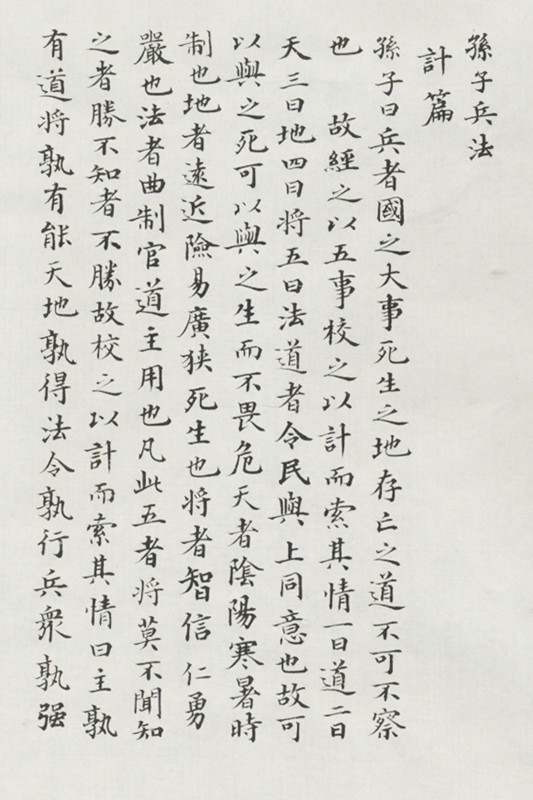 孫子兵法
計篇
孫子曰兵者國之大事死生之地存亡之道不可不察
也　故經之以五事校之以計而索其情一曰道二曰
天三曰地四曰将五曰法道者令民與上同意也故可
以與之死可以與之生而不畏危天者陰陽寒暑時
制也地者遠近險易廣狭死生也将者智信仁勇
嚴也法者曲制官道主用也凡此五者将莫不聞知
之者勝不知者不勝故校之以計而索其情曰主孰
有道将孰有能天地孰得法令孰行兵衆孰强